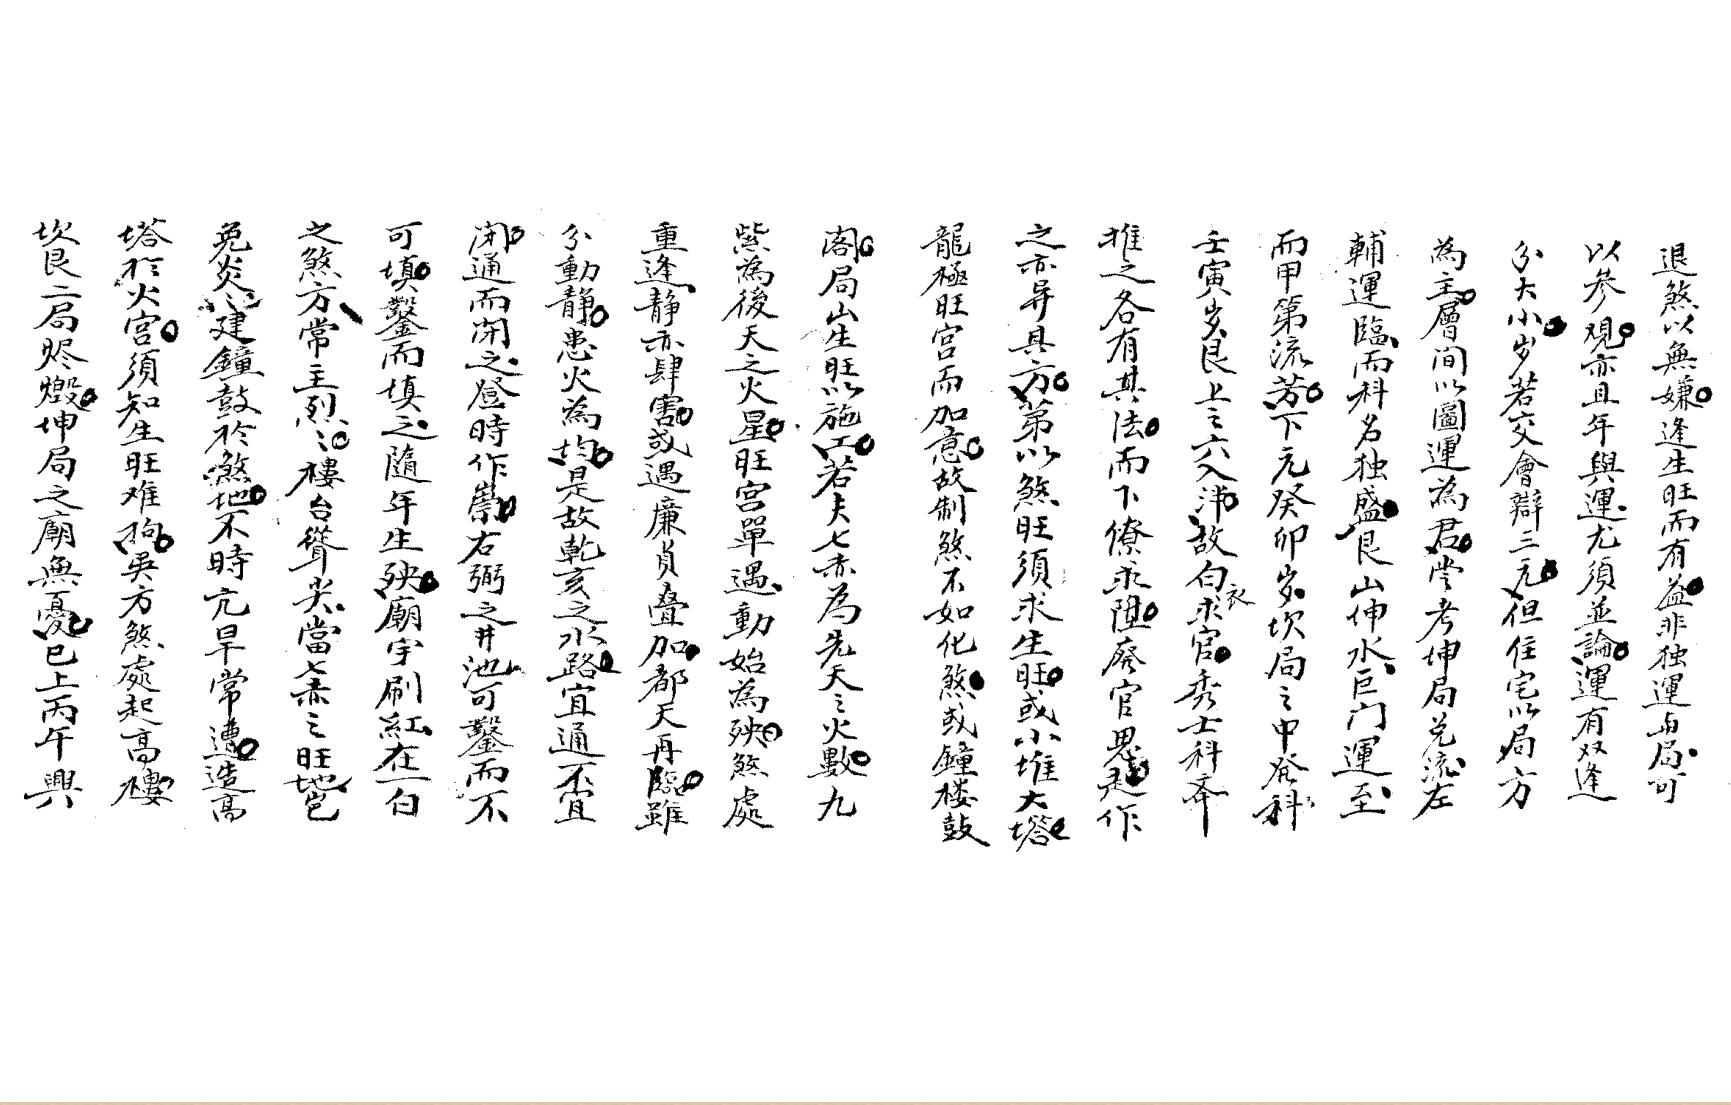 退煞以無嫌逢生旺而有益非独運与局可
以参观亦且年與運尤須並論運有双逢
分大小岁若交會辯三元但住宅以局方
為主層间以圖運為君尝考坤局兑流左
輔運臨而科名独盛艮山伸水巨门運至
而甲第流芳下元癸卯岁坎局之中发科
壬寅岁艮上之六入泮故白衣求官秀士科斉
推之各有其法而下僚求陞廢官思起作
之亦异具方第以煞旺須求生旺或小堆大塔
龍極旺宫而加意故制煞不如化煞或鐘楼鼓
阁局山生旺以施工若夫七赤為先天之火數九
紫為後天之火星旺宫單遇動始為殃煞處
重逢静亦肆害或遇廉貞叠加都天再臨雖
分動静患火為均是故乾亥之水路宜通不宜
闭通而闭之登時作祟右弼之井池可鑿而不
可填鑿而填之隨年生殃廟宇刷紅在一白
之煞方常主烈〻楼台聳尖當七赤之旺地岂
免炎〻建鐘鼓於煞地不時亢旱常遭造高
塔於火宫須知生旺难拘吴方煞處起高樓
坎艮二局烬燬坤局之廟無憂巳上丙午興